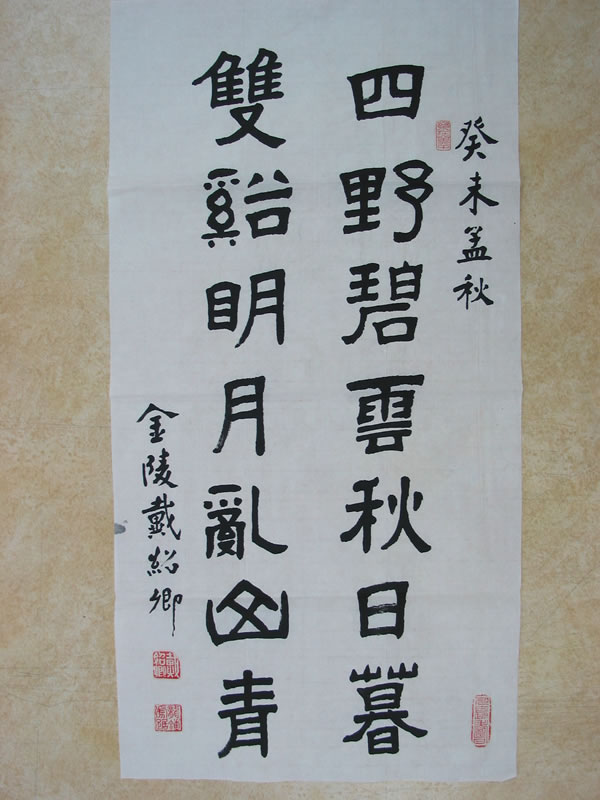 癸未孟秋
四野碧雲秋日暮
雙谿明月亂山青
金陵戴紹卿